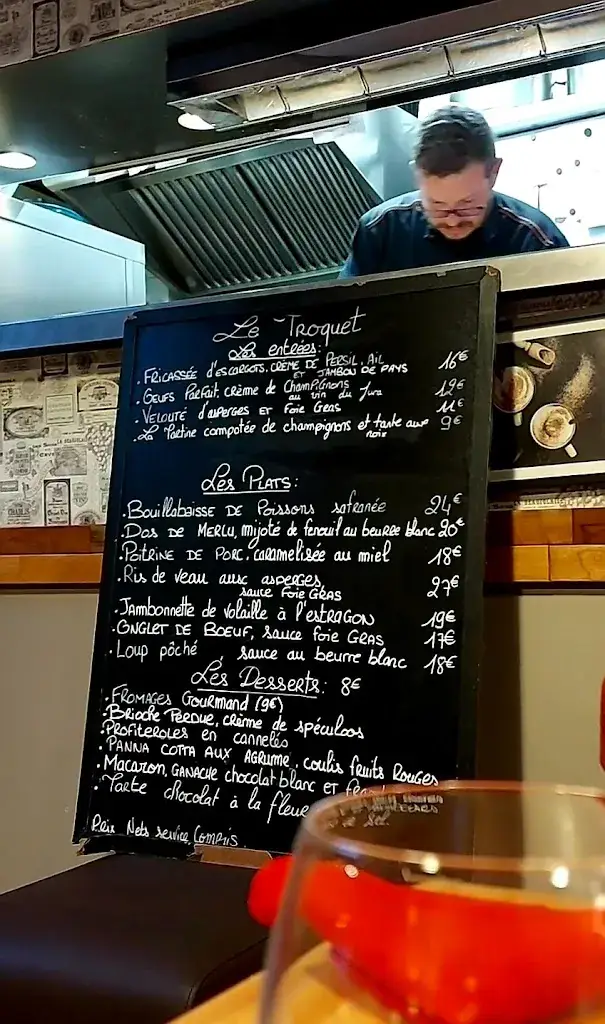 Le Troquet
Les entrées:
. FRICASSÉE d'ESCARGOTS, CRÈME DE PERSIL, AIL 16€
ET JAMBON DE PAYS
. OEUFS PARFAIT, CRÈME DE CHAMPIGNONS 12€
au vin du Jura
. VELOUTÉ d'ASPERGES ET FOIE GRAS 11€
. La Tartine compotée de champignons et tarte aux 9€
noix
Les PLATS:
. Bouillabaisse DE Poissons safranée 24€
. Dos DE MERLU, mijoté de fenouil au beurre blanc 20€
. Poitrine DE PORC, caramelisée au miel 18€
. Ris de veau aux asperges, 27€
sauce Foie GRAS
. Jambonnette de volaille à l'ESTRAGON 19€
. ONGLET DE BOEUF, sauce foie GRAS 17€
. Loup pôché, sauce au beurre blanc 18€
Les Desserts: 8€
. FROMAGES GOURMAND (9€)
. Brioche PERDUE, crème de spéculoos
. Profiteroles en cannelés
. PANNA COTTA AUX AGRUME, coulis fruits Rouges
. Macaron, GANACHE chocolat blanc ET
. Tarte chocolat à la fleur
Prix Nets service Compris